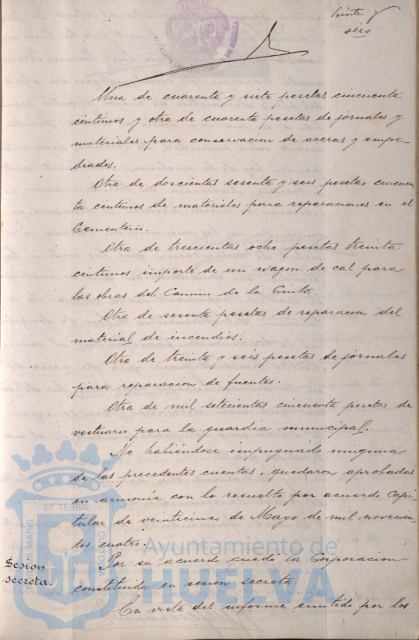 Veinte y
seis
Una de cuarenta y siete pesetas cincuenta
centimos y otra de cuarenta pesetas de jornales y
materiales para conservacion de aceras y empe-
drados.
Otra de doscientas sesenta y seis pesetas cincuen
ta centimos de materiales para reparaciones en el
Cementerio.
Otra de trescientas ocho pesetas treinta
centimos importe de un wagon de cal para
las obras del Camino de la Cinta.
Otra de sesenta pesetas de reparacion del
material de incendios.
Otra de treinta y seis pesetas de jornales
para reparacion de fuentes.
Otra de mil setecientas cincuenta pesetas de
vestuario para la guardia municipal.
No habiéndose impugnado ninguna
de las precedentes cuentas, quedaron aprobadas
en armonia con lo resuelto por acuerdo Capi-
tular de veinticinco de Mayo de mil novecien
tos cuatro.
Sesion
secreta.
Por su acuerdo quedó la Corporacion
constituida en sesion secreta
En vista del informe emitido por los
Ayuntamiento de
HUELVA